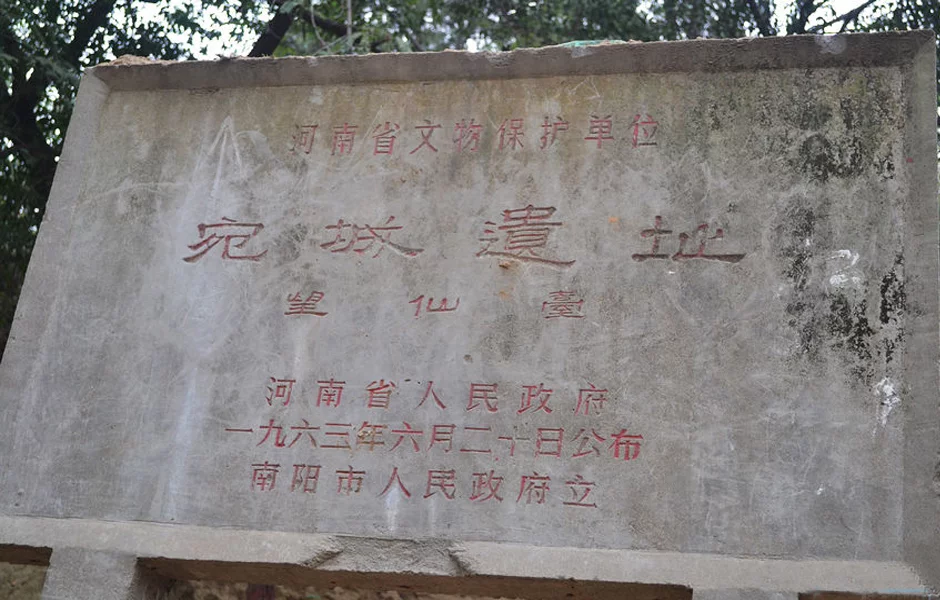 河南省文物保护单位
宛城遺址
望仙臺
河南省人民政府
一九六三年六月二十日公布
南阳市人民政府立